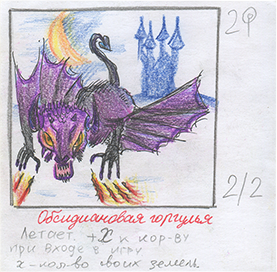 2
2/2
Обсидиановая горгулья
Летает. +X к кор-ву
при входе в игру
x - кол-во своих земель